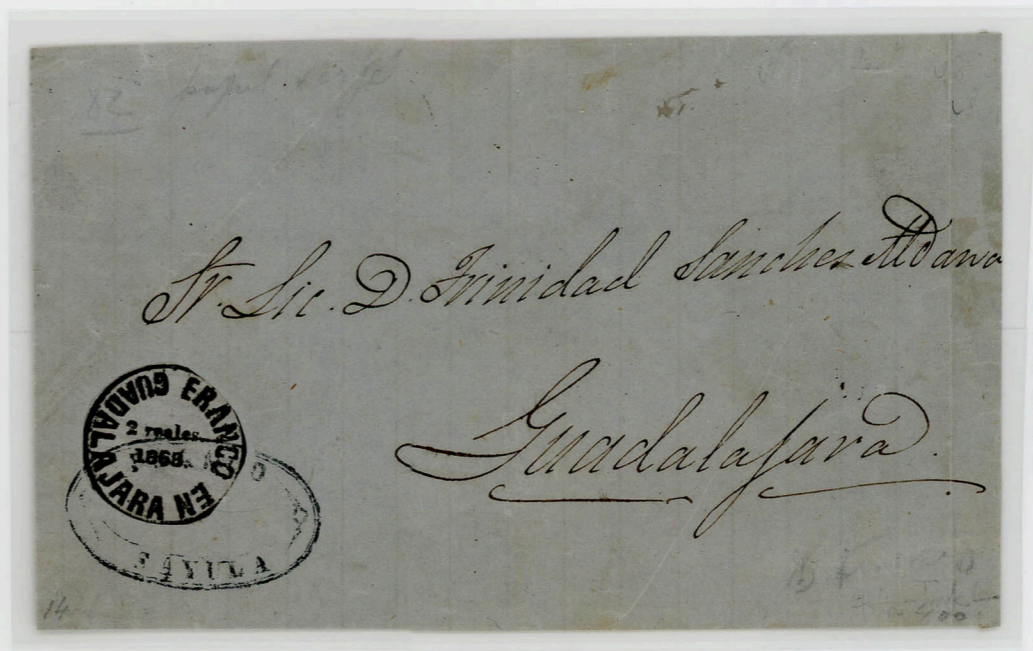 Sr. Lic. D. Trinidad Sanches Aldana
Guadalajara.
FRANCO EN GUADALAJARA
2 reales
1868.
SAYULA
14